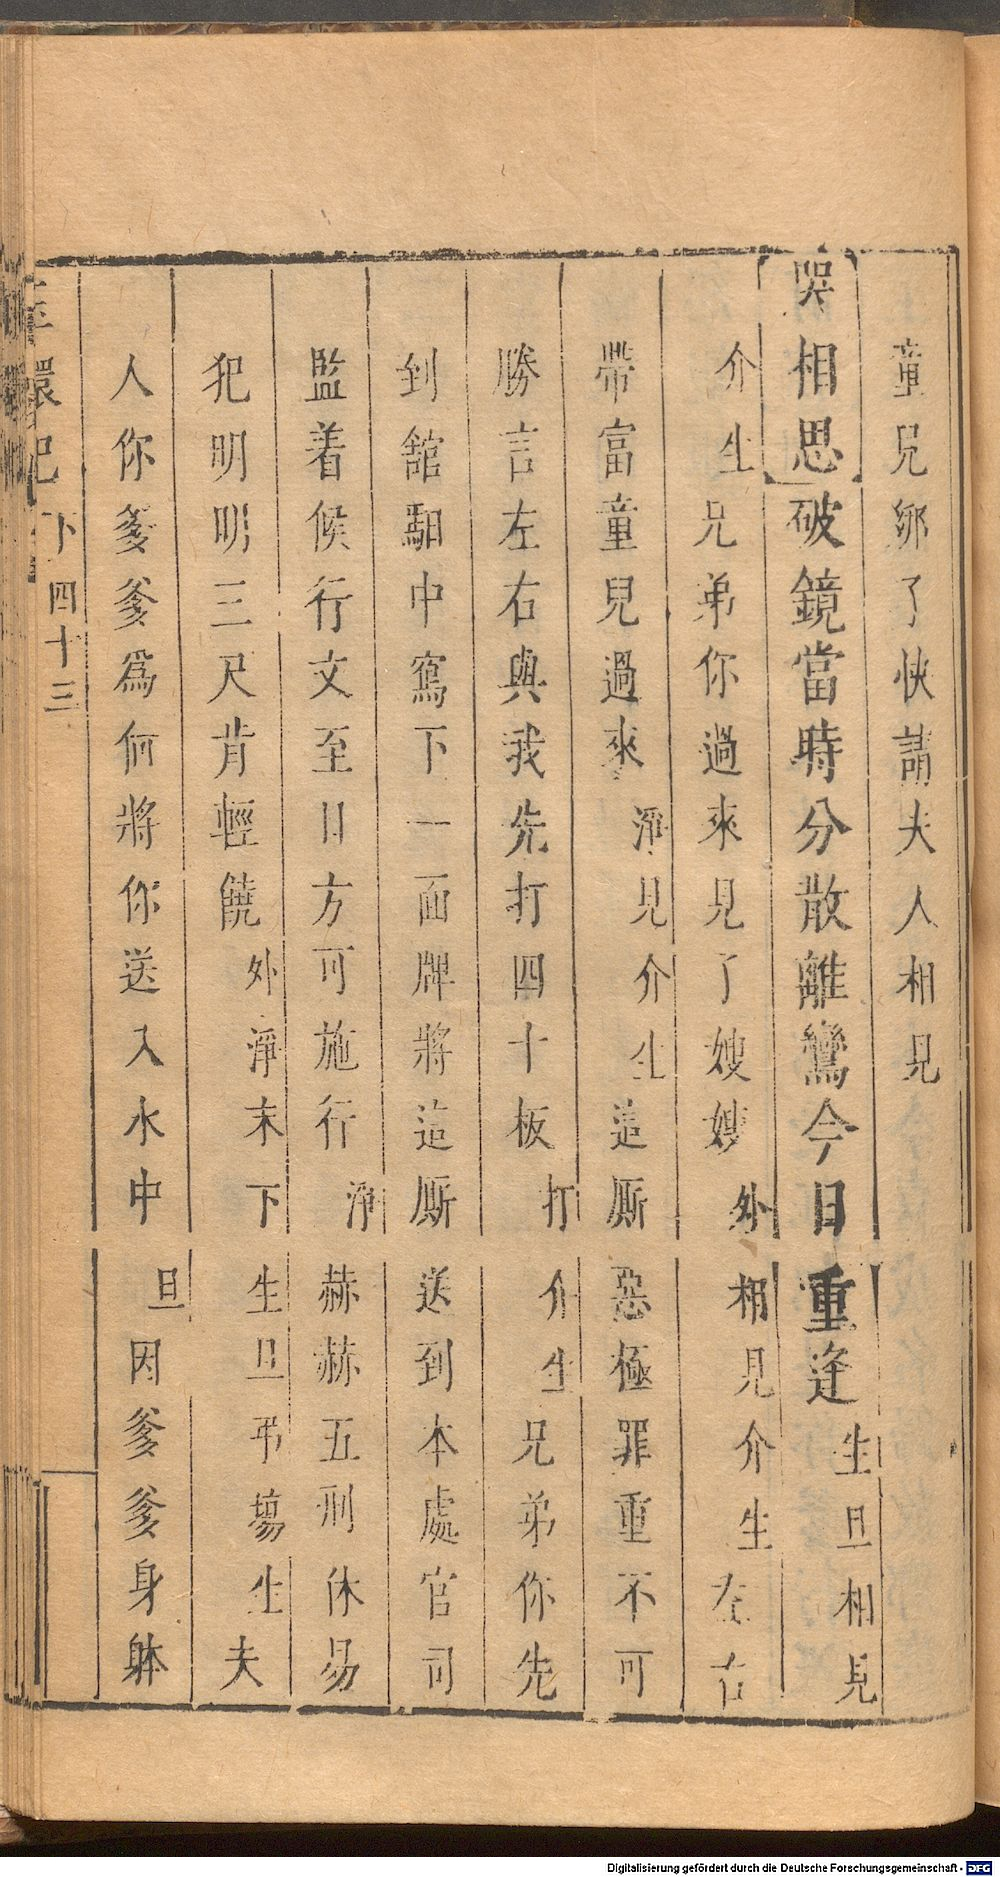 童兒綁了快請夫人相見
哭相思 破鏡當時分散離鸞今日重逢 生旦相見
介 生 兄弟你過來見了嫂嫂 外相見介 生 左右
帶富童兒過來 淨見介 生 這厮惡極罪重不可
勝言左右與我先打四十板 打介 生 兄弟你先
到舘馹中寫下一面牌將這厮送到本處官司
監着候行文至日方可施行 淨 赫赫五刑休易
犯明明三尺肯輕饒 外淨末下 生旦弔塲 生 夫
人你爹爹爲何將你送入水中 旦 因爹爹身躰
玉環记 下 四十三
Digitalisierung gefördert durch die Deutsche Forschungsgemeinschaft - DFG